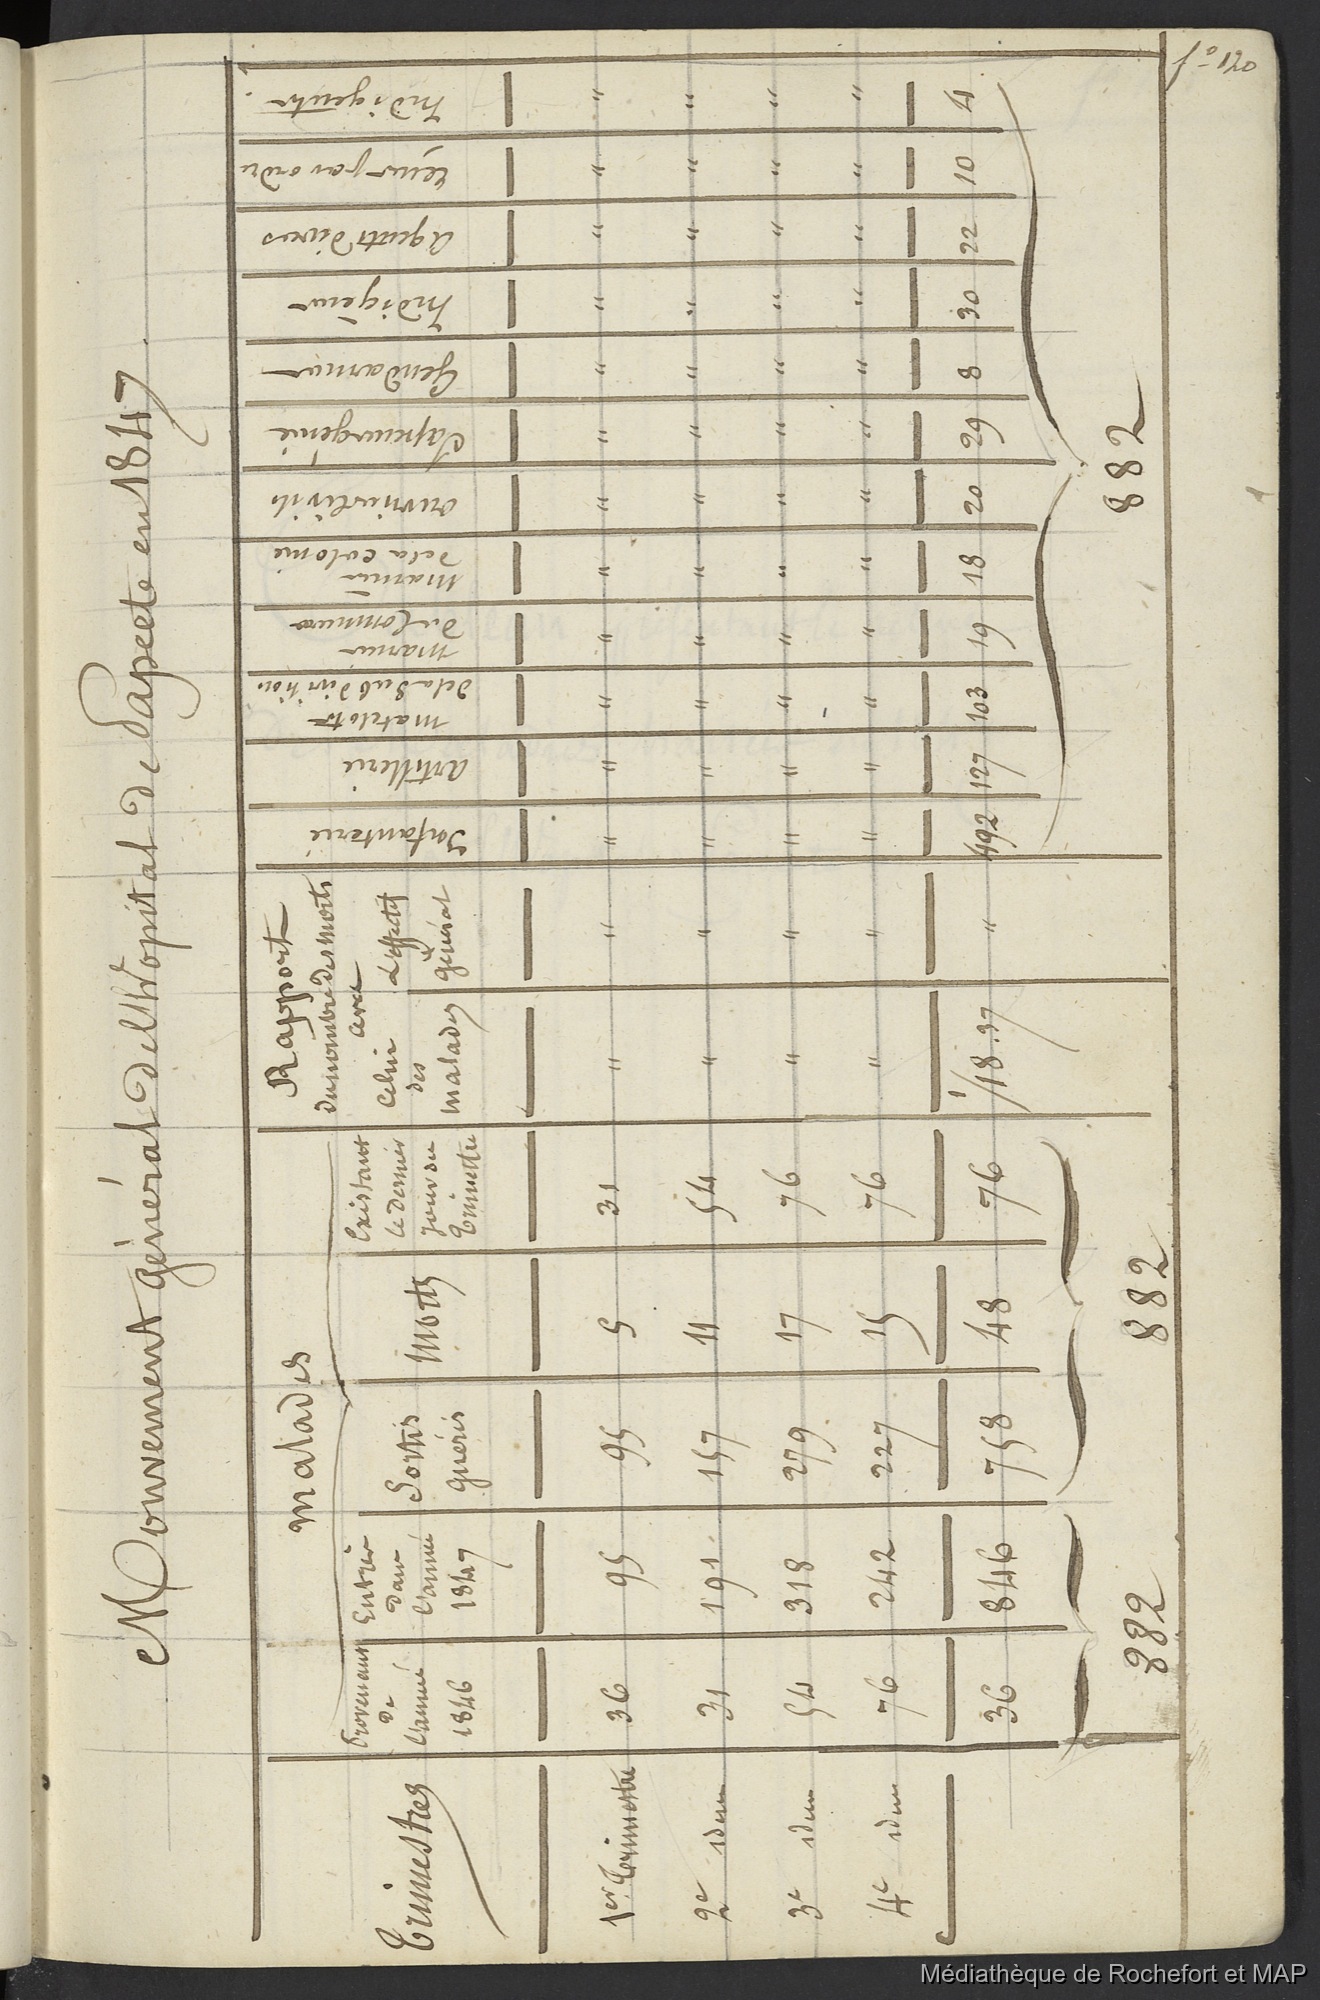 fo 120
Mouvement général de l'hopital de Papeete en 1847
Trimestres
malades
Provenant de l'année 1846
Entrés dans l'année 1847
Sortis guéris
Morts
Existant le dernier jour du Trimestre
Rapport
du nombre des morts
avec
Celui des malades
L'effectif général
Infanterie
Artillerie
Matelots de la Subdivision
Marins du Commerce
Marins de la Colonie
Ouvriers Civils
Sapeurs génie
Gendarmes
Indigènes
Agents divers
par ordre
Indigents
1er Trimestre 36 95 95 5 31 " " " " " " " " " " " " " "
2e idem 31 191 157 11 54 " " " " " " " " " " " " " "
3e idem 54 318 279 17 76 " " " " " " " " " " " " " "
4e idem 76 242 227 15 76 " " " " " " " " " " " " " "
36 846 758 48 76 1/18.37 " 492 127 103 19 18 20 29 8 30 22 10 4
882 882 882
Médiathèque de Rochefort et MAP